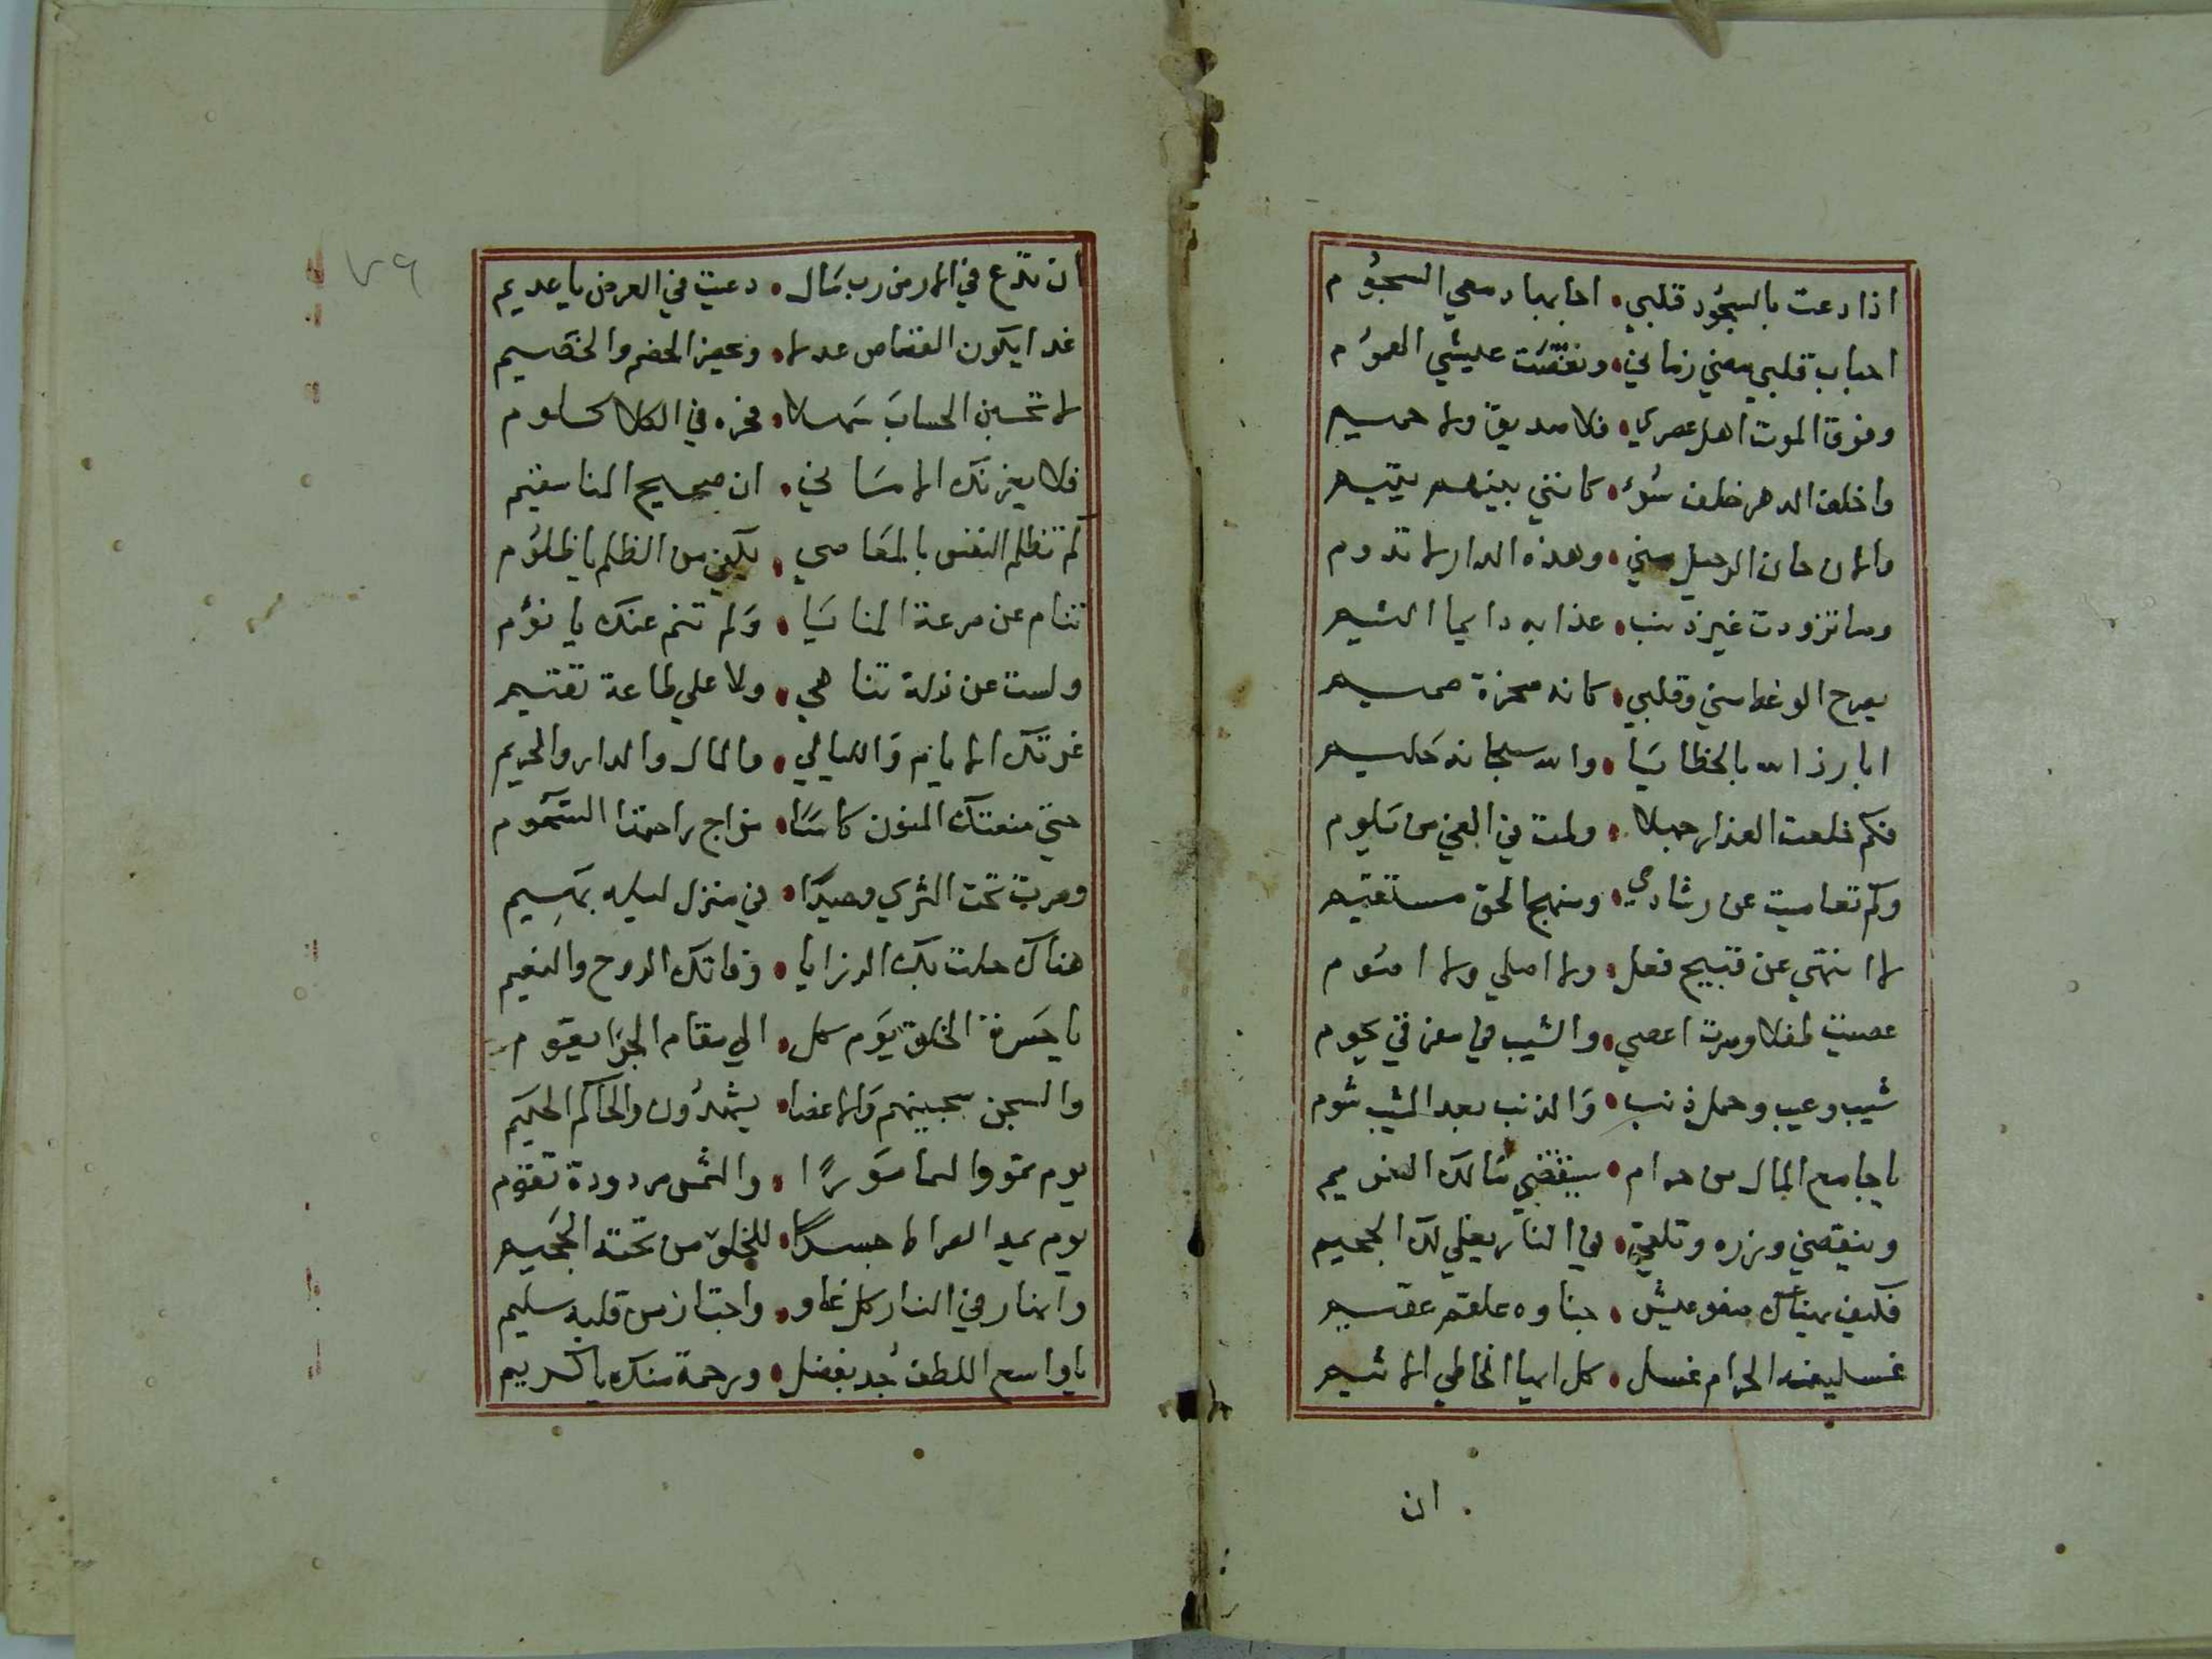 اذا دعت بالسجود قلبي • اجابها دمعي السجوم
احباب قلبي مضي زماني • ونغصت عليشي الهموم
وفرق الموت اهل عصري • فلا صديق ولا حميم
واخلف الدهر خلف سوء • كانني بينهم يتيم
والان حان الرحيل مني • وهذه الدار لا تدوم
وما تزودت غير ذنب • عذابه دايما اليم
يصرح الوعظ مني وقلبي • كانه صخرة صميم
ابارز الله بالخطايا • والله سبحانه حليم
فكم خلعت العذار جهلا • ولمت في الغي من يلوم
وكم تعاميت عن رشادي • ومنهج الحق مستقيم
لا انتهي عن قبيح فعل • ولا اصلي ولا اصوم
عصيت طفلا وصرت اعصي • والشيب في مفرقي يحوم
شيب وعيب وحمل ذنب • والذنب بعد المشيب شوم
يا جامع المال من حرام • سينقضي مالك الغريم
وينقضي وزره وتلقي • في النار يغلي لك الحميم
فكيف يهناك صفو عيش • جناوه علقم عقيم
غسلينه الحرام غسل • كل ايها الخاطي الاثيم
ان
٧٩
ان تدع في الارض رب مال • دعيت في العرض يا عديم
غدا يكون القصاص عدلا • ويحضر الخصم والخصيم
لا تحسبن الحساب سهلا • فخزه في الكلا كلوم
فلا يغرنك الاماني • ان صحيح المنا سقيم
كم تظلم النفس بالمعاصي • يكفي من الظلم يا ظلوم
تنام عن سرعة المنايا • ولم تنم عنك يا نؤم
ولست عن زلة تناهي • ولا علي طاعة تقيم
غرتك الايام والليالي • والمال والدار والحريم
حتي سقتك المنون كاسا • مزاج راحتها السموم
وصرت تحت الثري وحيدا • في منزل ليله بهيم
هناك حلت بك الرزايا • وفاتك الروح والنعيم
يا حسرة الخلق يوم كل • الي مقام الجزا يقوم
والسجن سجينهم والاعضا • يشهدون والحاكم الحكيم
يوم تمور السما مورا • والشمس مردودة تقوم
يوم يمد الصراط جسرا • للخلق من تحته الجحيم
وانهار في النار كل غاو • واجتاز من قلبه سليم
يا واسع اللطف جد بفضل • ورحمة منك يا كريم